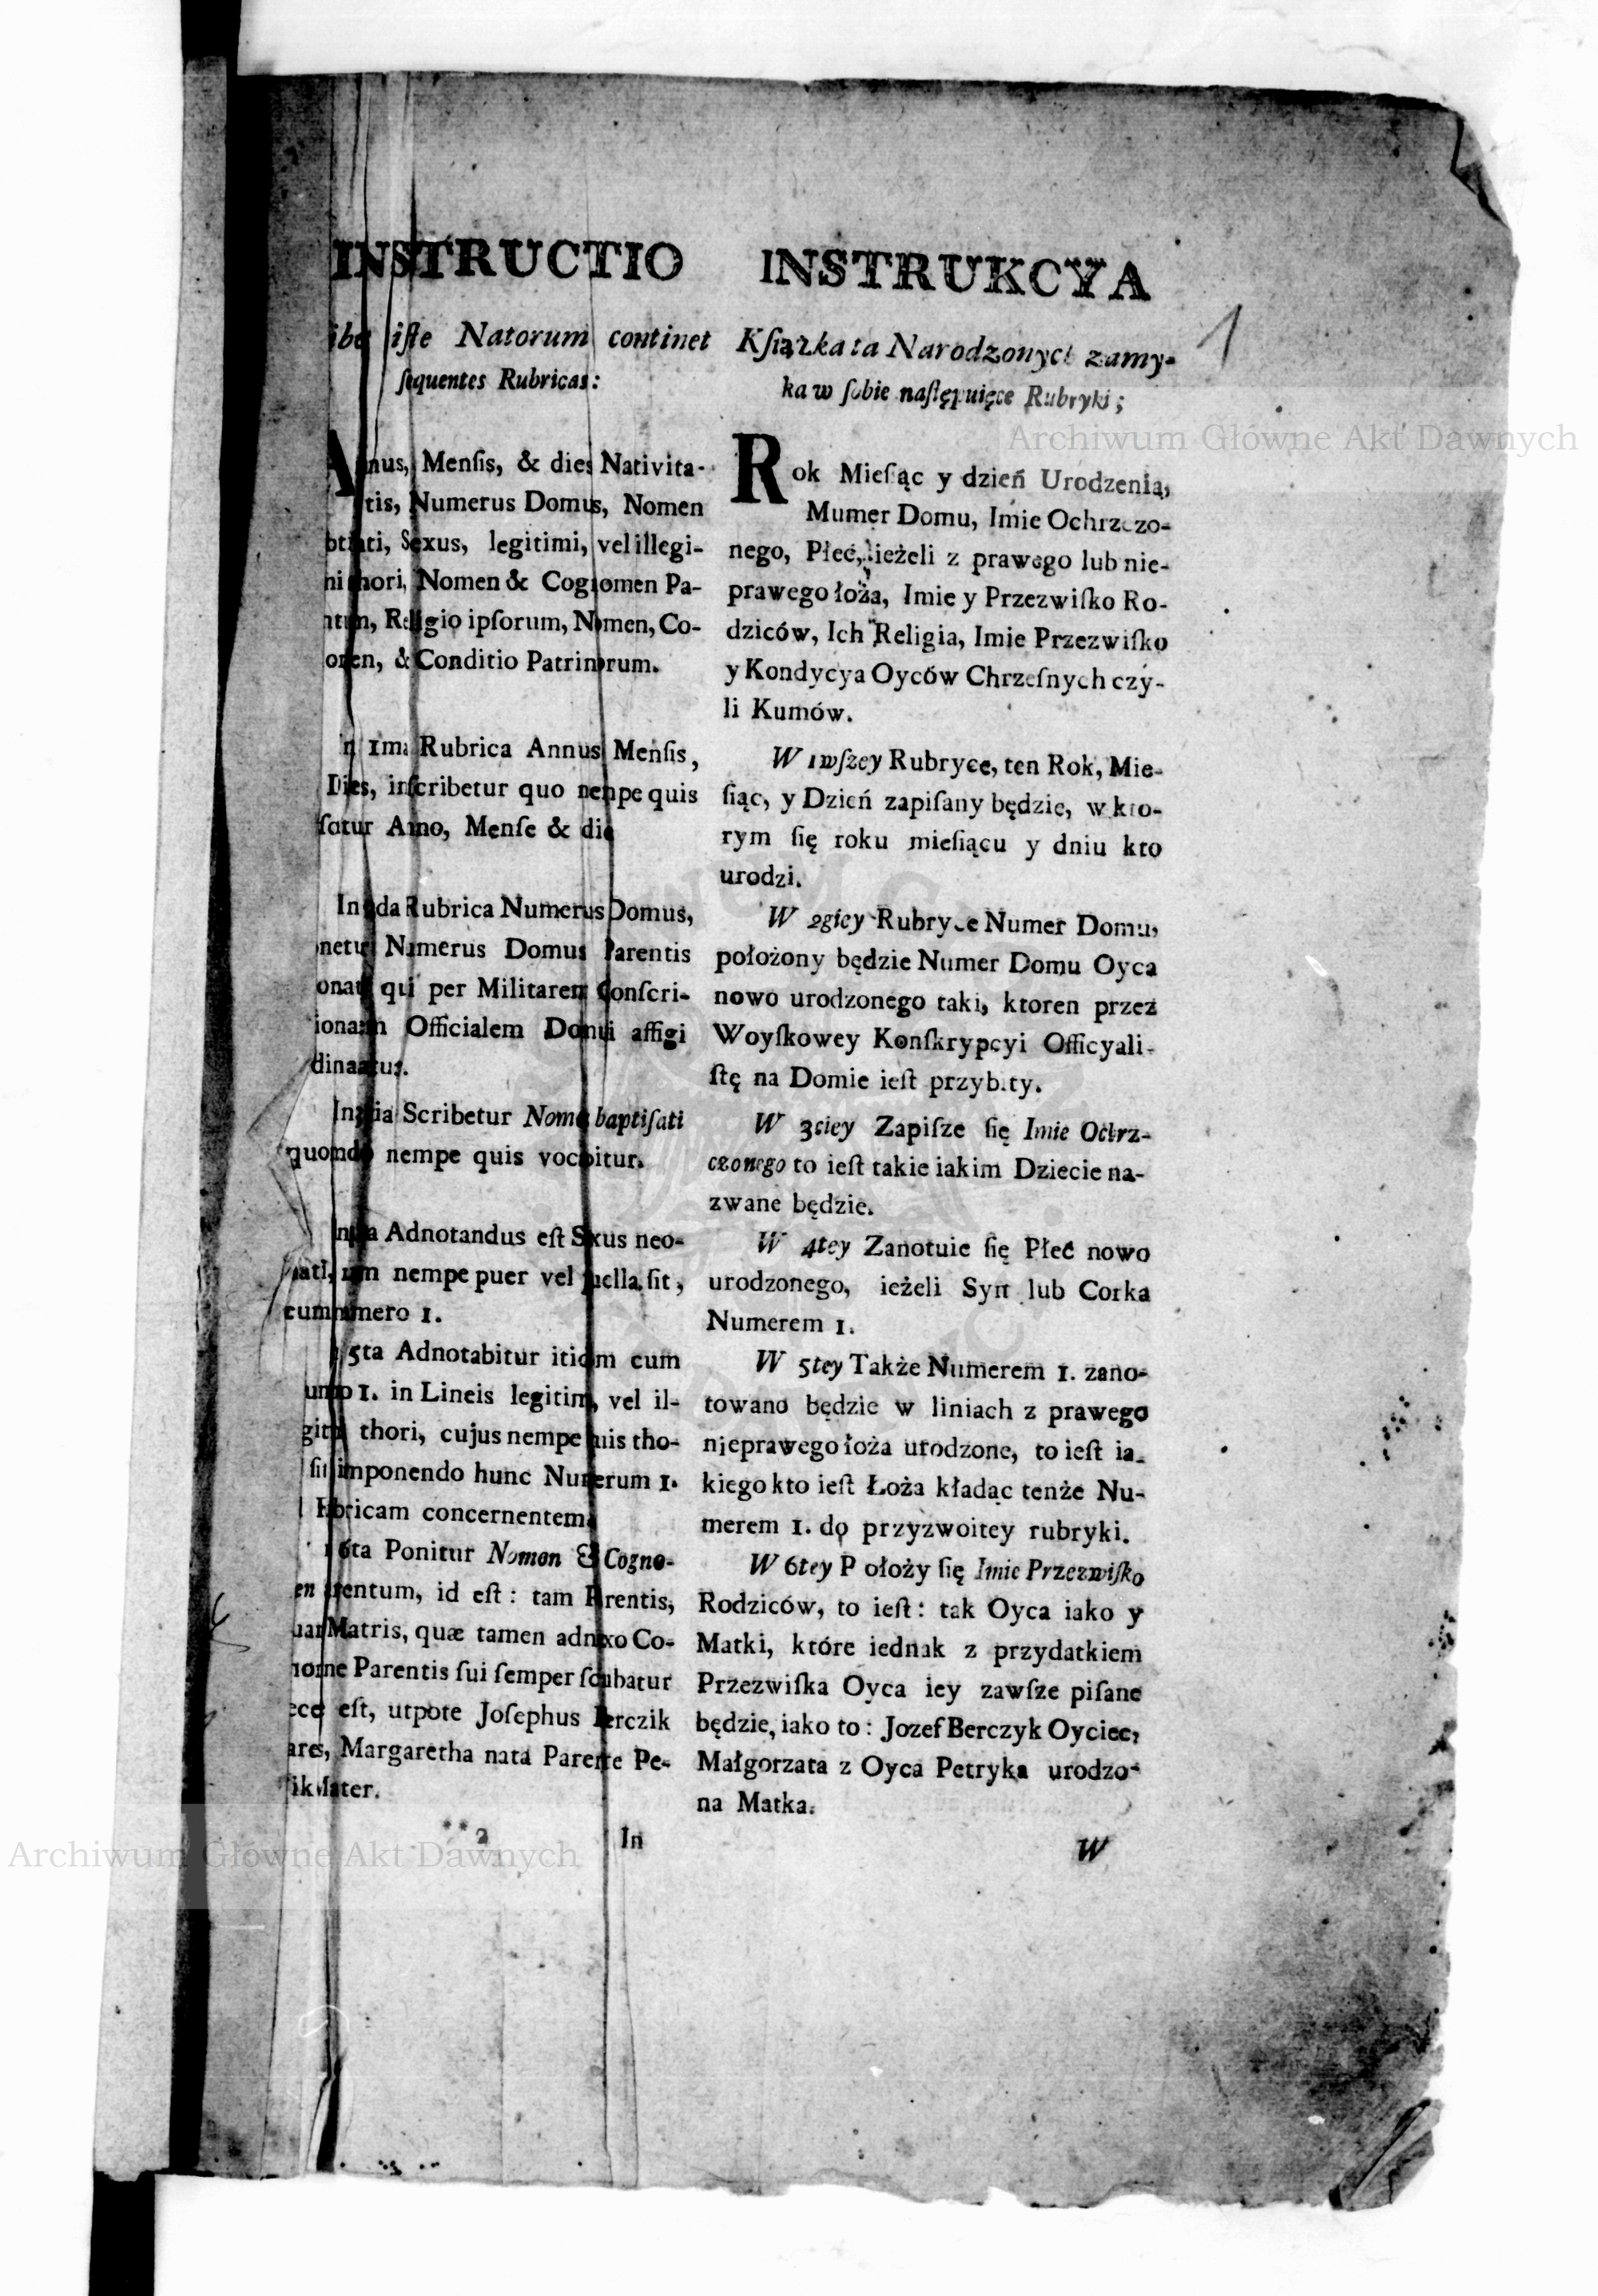 INSTRUCTIO
iſte Natorum continet
ſequentes Rubricas:
Menſis, & dies Nativita-
tis, Numerus Domus, Nomen
Sexus, legitimi, vel illegi-
thori, Nomen & Cognomen Pa-
Religio ipſorum, Nomen, Co-
& Conditio Patrinorum.
1ma Rubrica Annus Menſis,
Dies, inſcribetur quo nempe quis
Anno, Menſe & die
In 2da Rubrica Numerus Domus,
Numerus Domus Parentis
qui per Militarem Conſcri-
Officialem Domui affigi
In 3tia Scribetur Nomen baptiſati
quomodo nempe quis vocabitur.
Adnotandus eſt Sexus neo-
nempe puer vel puella ſit,
cum numero 1.
5ta Adnotabitur itidem cum
1. in Lineis legitimi, vel il-
thori, cujus nempe quis tho-
ſit imponendo hunc Numerum 1.
Rubricam concernentem.
6ta Ponitur Nomen & Cogno-
Parentum, id eſt: tam Parentis,
Matris, quæ tamen adnexo Co-
Parentis ſui ſemper ſcribatur
eſt, utpote Joſephus Berczik
Margaretha nata Parente Pe-
Mater.
**2 In
INSTRUKCYA
Kſiązka ta Narodzonych zamy-
ka w ſobie naſtępuięce Rubryki;
Rok Mieſąc y dzień Urodzenia,
Mumer Domu, Imie Ochrzczo-
nego, Płeć, ieżeli z prawego lub nie-
prawego łoża, Imie y Przezwiſko Ro-
dziców, Ich Religia, Imie Przezwiſko
y Kondycya Oyców Chrzeſnych czy-
li Kumów.
W 1wſzey Rubryce, ten Rok, Mie-
ſiąc, y Dzień zapiſany będzie, w kto-
rym ſię roku mieſiącu y dniu kto
urodzi.
W 2giey Rubryce Numer Domu,
położony będzie Numer Domu Oyca
nowo urodzonego taki, ktoren przez
Woyſkowey Konſkrypcyi Officyali-
ſtę na Domie ieſt przybity.
W 3ciey Zapiſze ſię Imie Ochrz-
czonego to ieſt takie iakim Dziecie na-
zwane będzie.
W 4tey Zanotuie ſię Płeć nowo
urodzonego, ieżeli Syn lub Corka
Numerem 1.
W 5tey Także Numerem 1. zano-
towano będzie w liniach z prawego
nieprawego łoża urodzone, to ieſt ia-
kiego kto ieſt Łoża kładąc tenże Nu-
merem 1. do przyzwoitey rubryki.
W 6tey P ołoży ſię Imie Przezwiſko
Rodziców, to ieſt: tak Oyca iako y
Matki, które iednak z przydatkiem
Przezwiſka Oyca iey zawſze piſane
będzie, iako to: Jozef Berczyk Oyciec,
Małgorzata z Oyca Petryka urodzo-
na Matka.
W
1
Archiwum Główne Akt Dawnych
Archiwum Główne Akt Dawnych